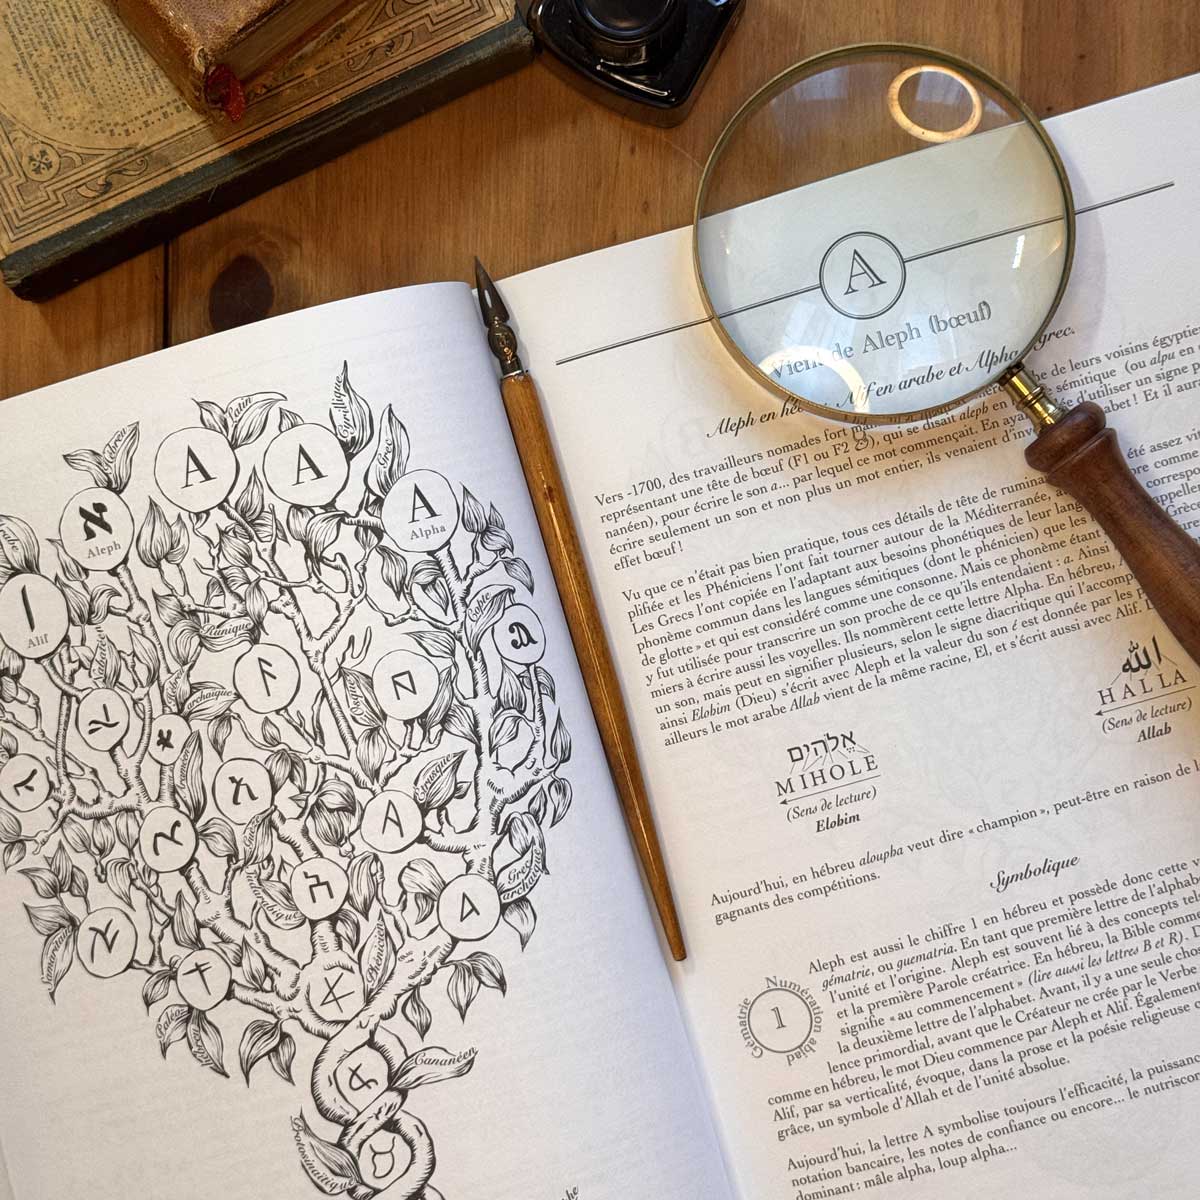 Hébreu
Latin
Cyrillique
Grec
Arabe
א
Aleph
A
A
A
Alpha
ا
Alif
Runique
Copte
Osque
Étrusque
Grec
archaïque
Phénicien
Samaritain
Paléo
Cananéen
Protosinaïtique
A
Vient de Aleph (bœuf)
Aleph en
Alif en arabe et Alpha
grec.
Vers -1700, des travailleurs nomades fort
de leurs voisins égyptie
représentant une tête de bœuf (F1 ou F2), qui se disait aleph en
sémitique (ou alpu en
nanéen), pour écrire le son a... par lequel ce mot commençait. En ayan
d'utiliser un signe p
écrire seulement un son et non plus un mot entier, ils venaient d'inve
abet ! Et il aur
effet bœuf !
Vu que ce n'était pas bien pratique, tous ces détails de tête de rumina
été assez vit
plifiée et les Phéniciens l'ont fait tourner autour de la Méditerranée, a
comme
Les Grecs l'ont copiée en l'adaptant aux besoins phonétiques de leur lang
correspo
phonème commun dans les langues sémitiques (dont le phénicien) que les
appellen
de glotte » et qui est considéré comme une consonne. Mais ce phonème étant
Grèc
y fut utilisée pour transcrire un son proche de ce qu'ils entendaient : a. Ainsi
miers à écrire aussi les voyelles. Ils nommèrent cette lettre Alpha. En hébreu,
un son, mais peut en signifier plusieurs, selon le signe diacritique qui l'accomp
ainsi Elohim (Dieu) s'écrit avec Aleph et la valeur du son é est donnée par les
ailleurs le mot arabe Allah vient de la même racine, El, et s'écrit aussi avec Alif.
אֱלֹהִים
MIHOLE
(Sens de lecture)
Elohim
الله
HALLA
(Sens de lecture)
Allah
Aujourd'hui, en hébreu aloupha veut dire « champion », peut-être en raison de l
gagnants des compétitions.
Symbolique
Gématrie
Numération abjad
1
Aleph est aussi le chiffre 1 en hébreu et possède donc cette
gématrie, ou guematria. En tant que première lettre de l'alphabe
l'unité et l'origine. Aleph est souvent lié à des concepts tels
et la première Parole créatrice. En hébreu, la Bible comme
signifie « au commencement » (lire aussi les lettres B et R). D
la deuxième lettre de l'alphabet. Avant, il y a une seule cho
lence primordial, avant que le Créateur ne crée par le Verbe
comme en hébreu, le mot Dieu commence par Aleph et Alif. Également
Alif, par sa verticalité, évoque, dans la prose et la poésie religieuse
grâce, un symbole d'Allah et de l'unité absolue.
Aujourd'hui, la lettre A symbolise toujours l'efficacité, la puissanc
notation bancaire, les notes de confiance ou encore... le nutriscor
dominant : mâle alpha, loup alpha...